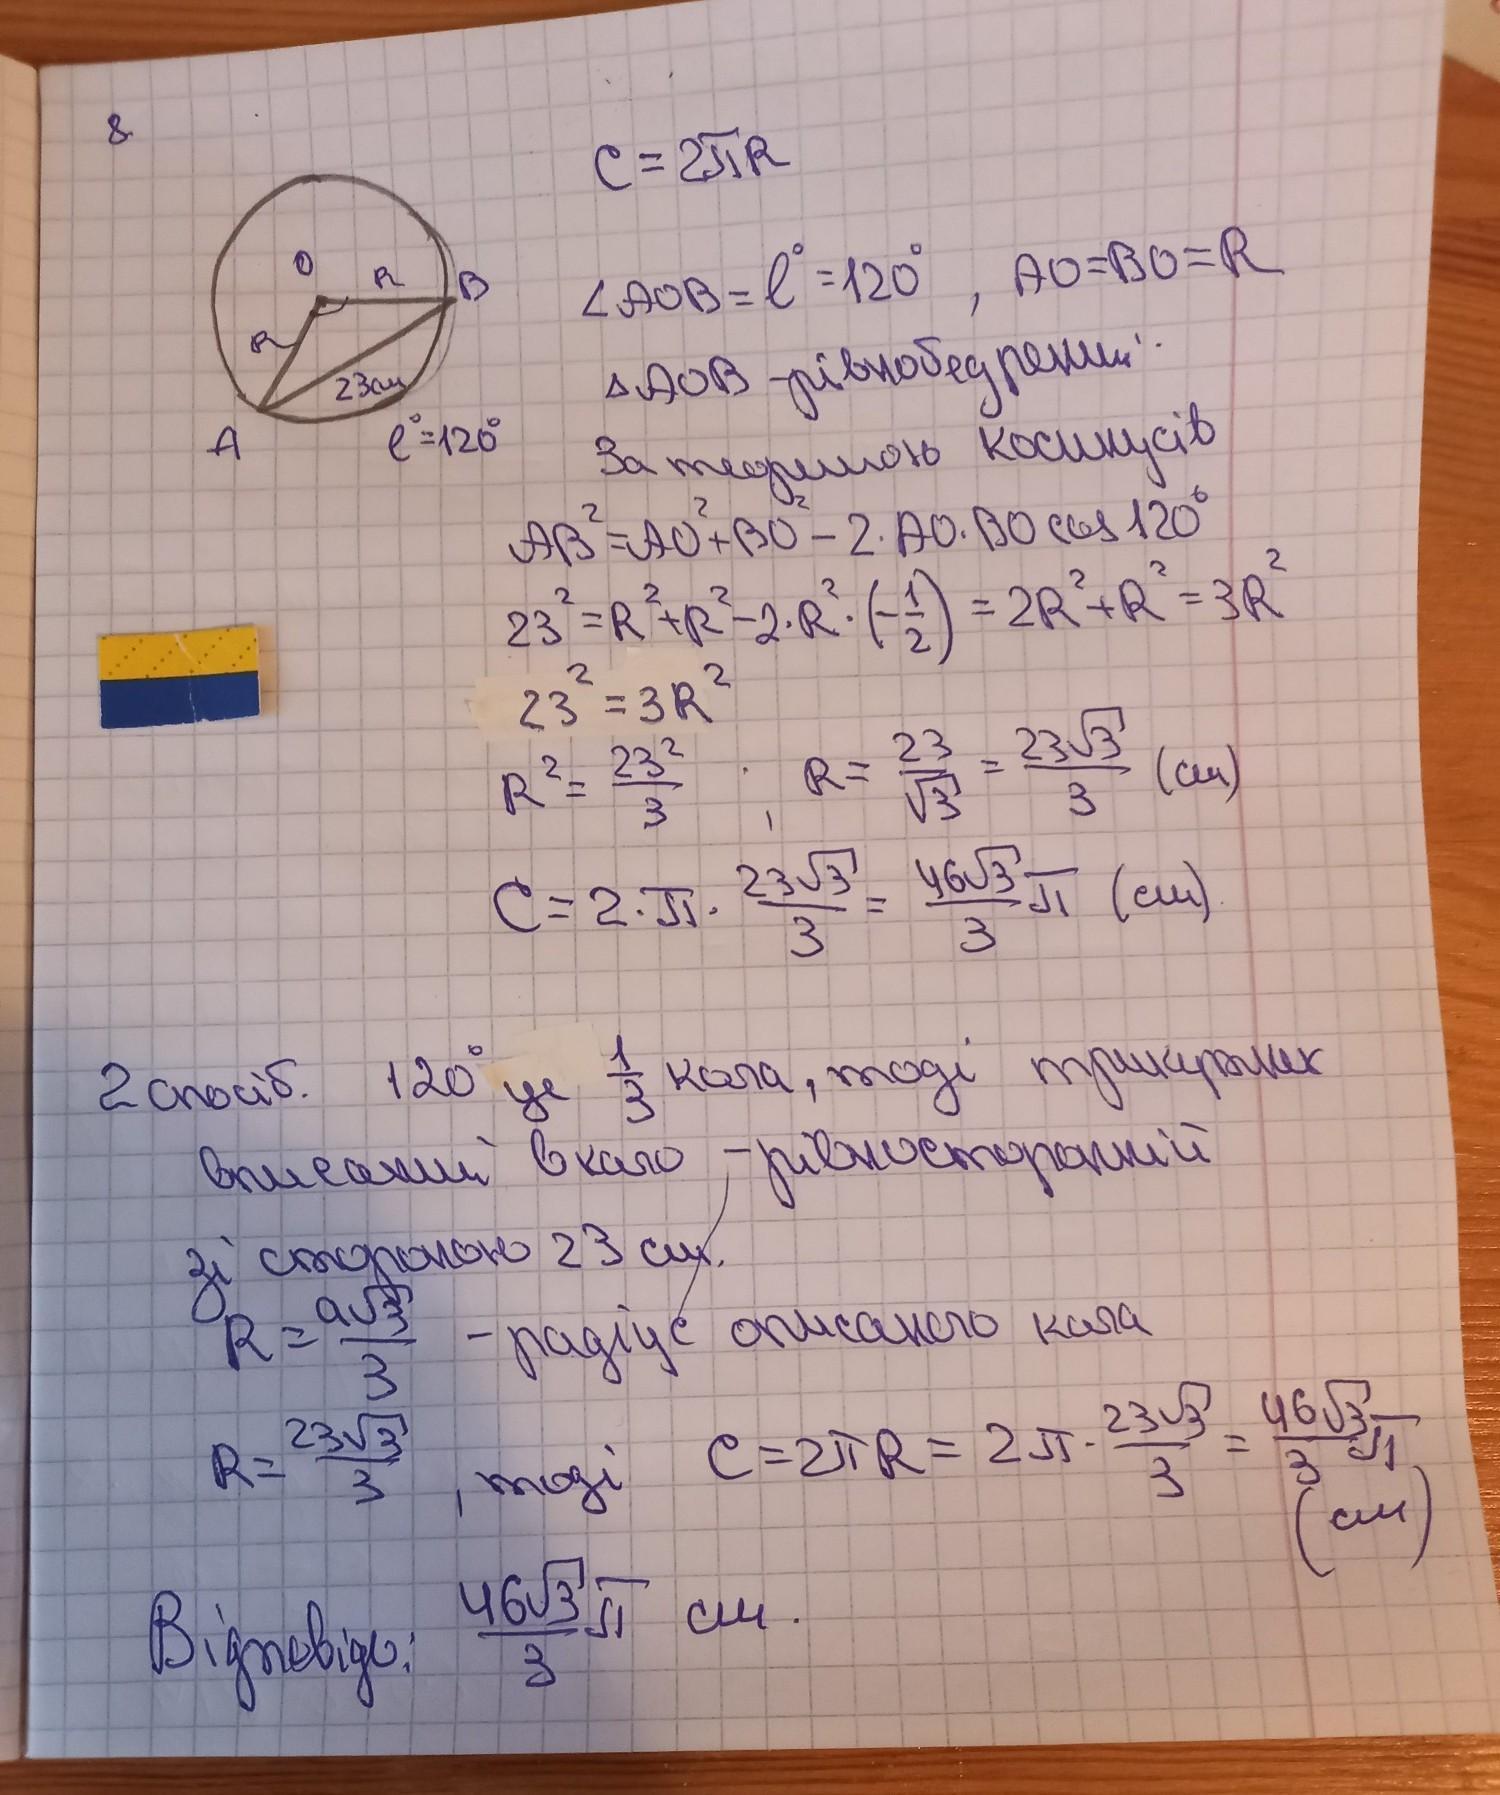 8.
C = 2πR
O
R
B
R
23см
A
l° = 120°
∠AOB = l° = 120°, AO = BO = R
△AOB - рівнобедрений
За теоремою косинусів
AB² = AO² + BO² - 2·AO·BO cos 120°
23² = R² + R² - 2·R²·(-1/2) = 2R² + R² = 3R²
23² = 3R²
R² = 23²/3 ; R = 23/√3 = 23√3/3 (см)
C = 2·π·23√3/3 = 46√3/3 π (см).
2 спосіб. 120° це 1/3 кола, тоді трикутник
вписаний в коло - рівносторонній
зі стороною 23 см.
R = a√3/3 - радіус описаного кола
R = 23√3/3, тоді C = 2πR = 2π·23√3/3 = 46√3/3 π
(см)
Відповідь: 46√3/3 π см.